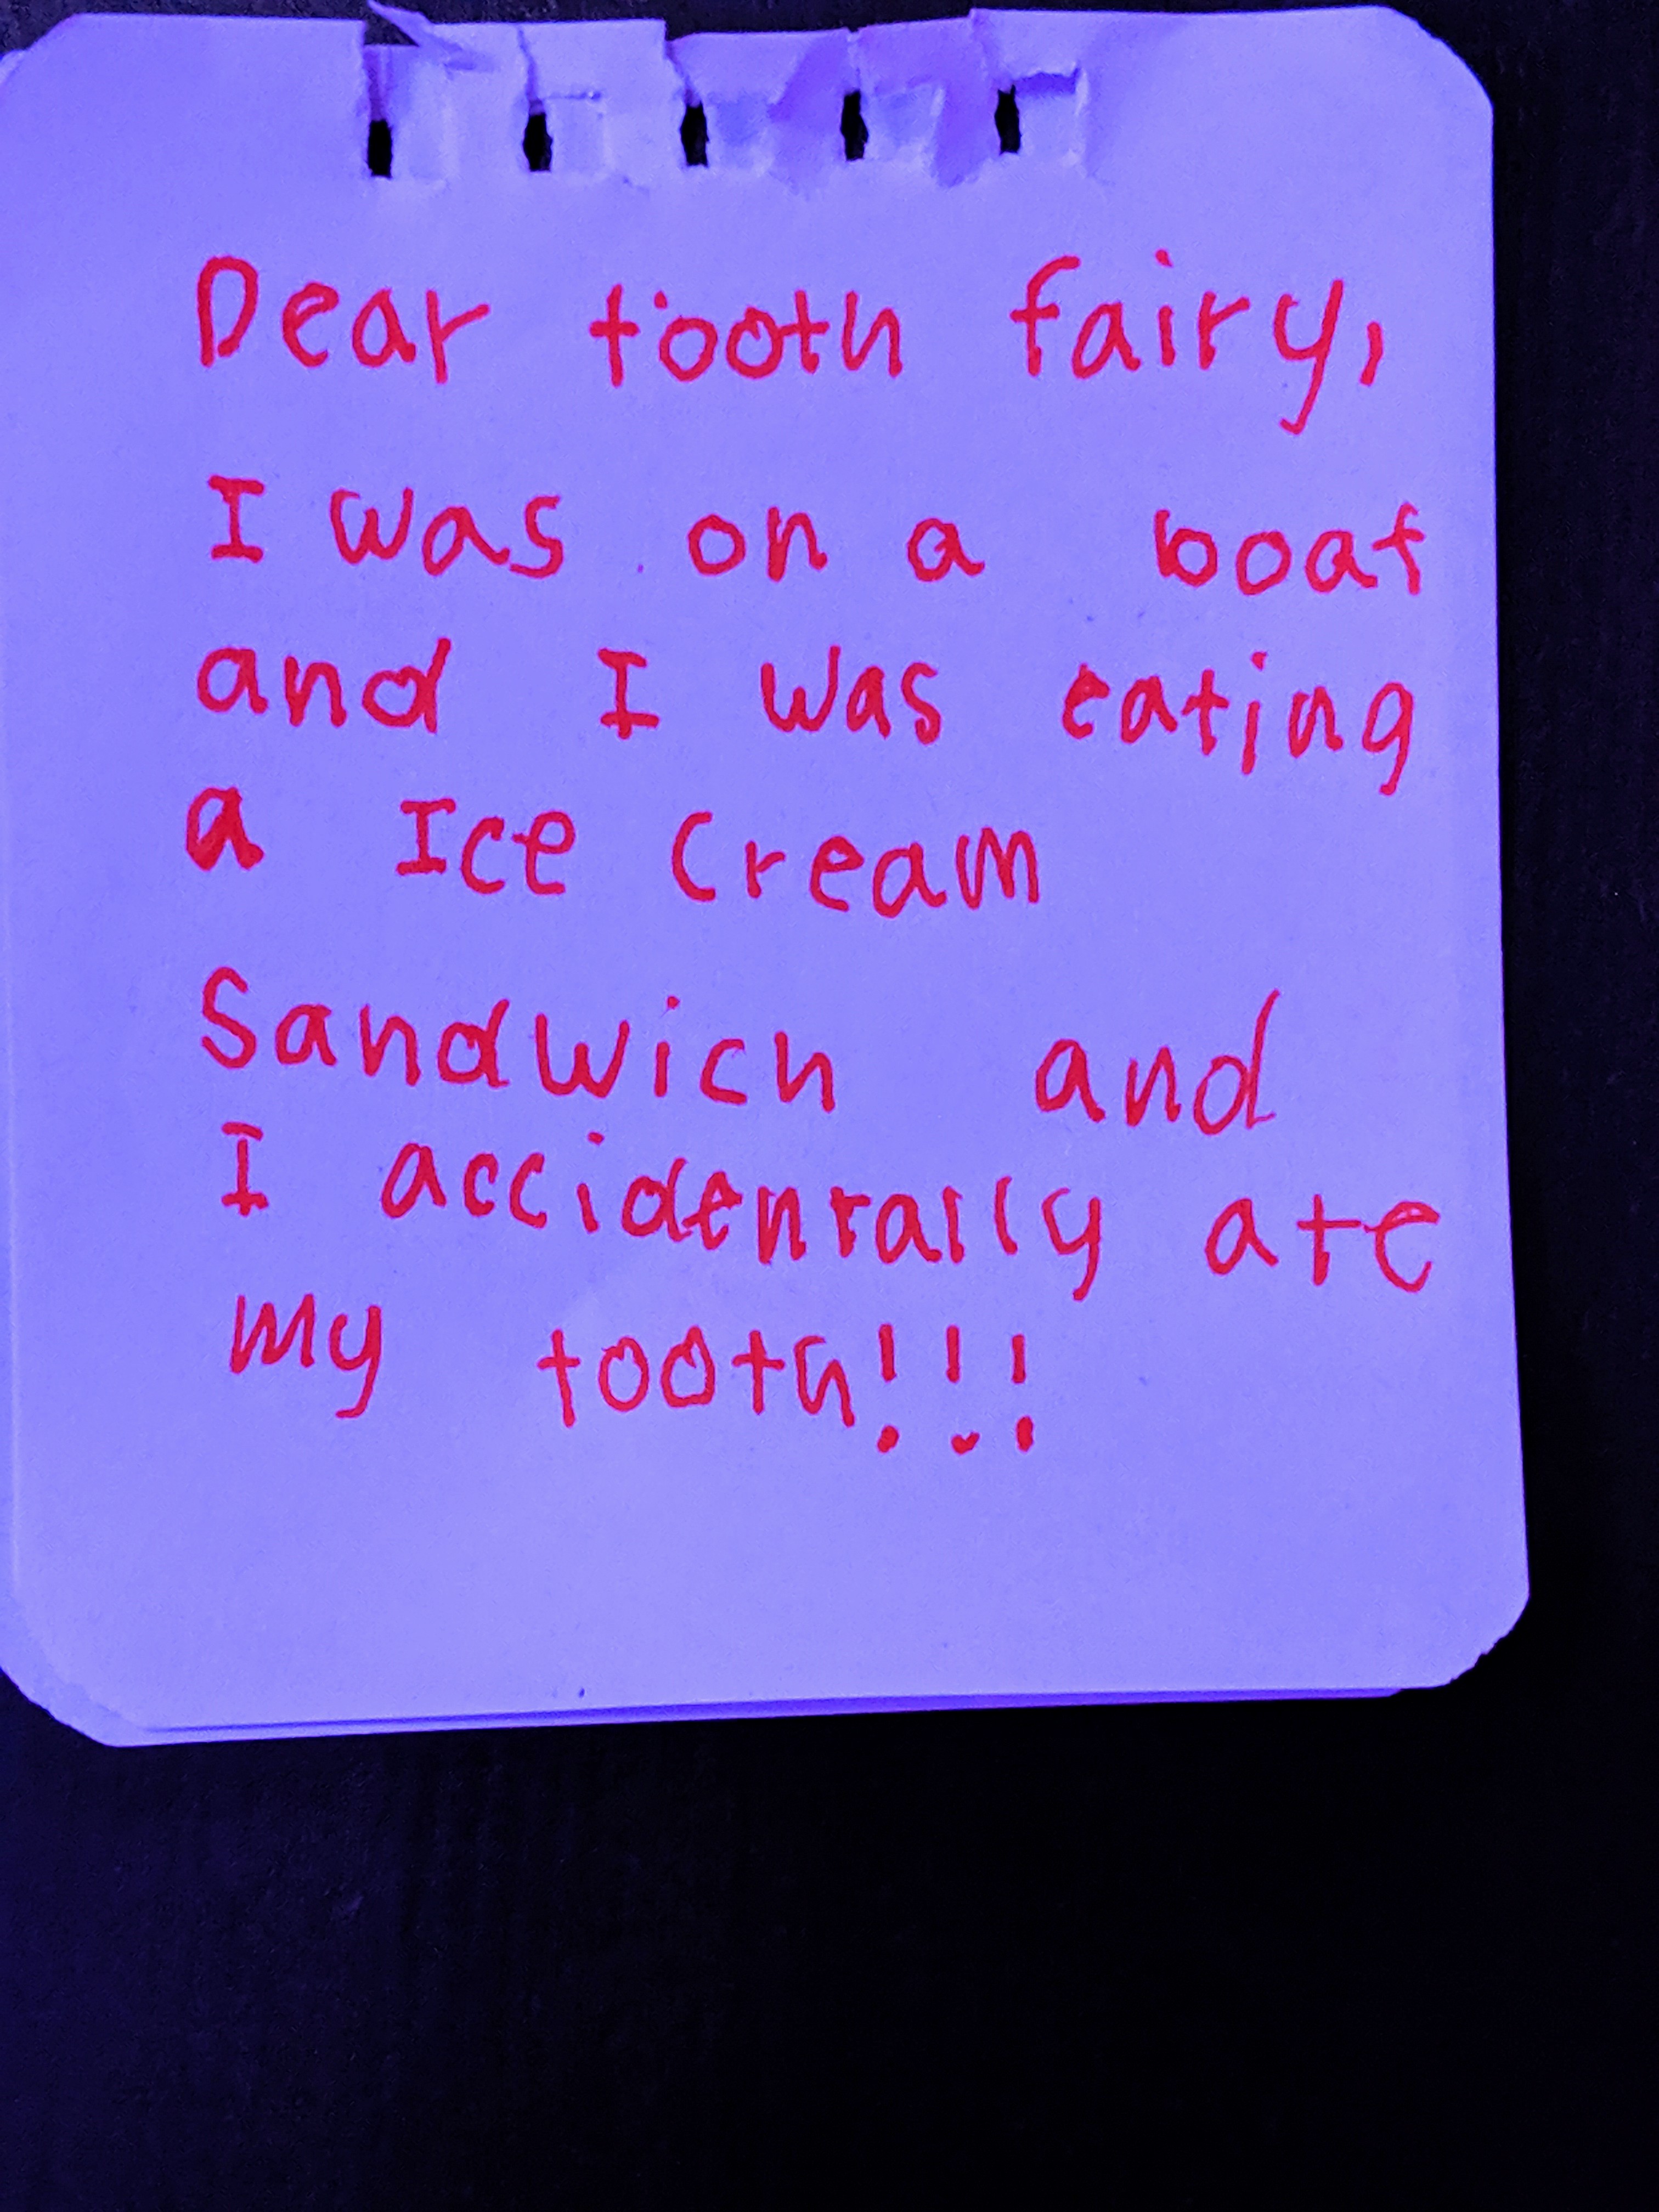 Dear tooth fairy,
I was on a boat
and I was eating
a Ice cream
Sandwich and
I accidentally ate
my tooth!!!